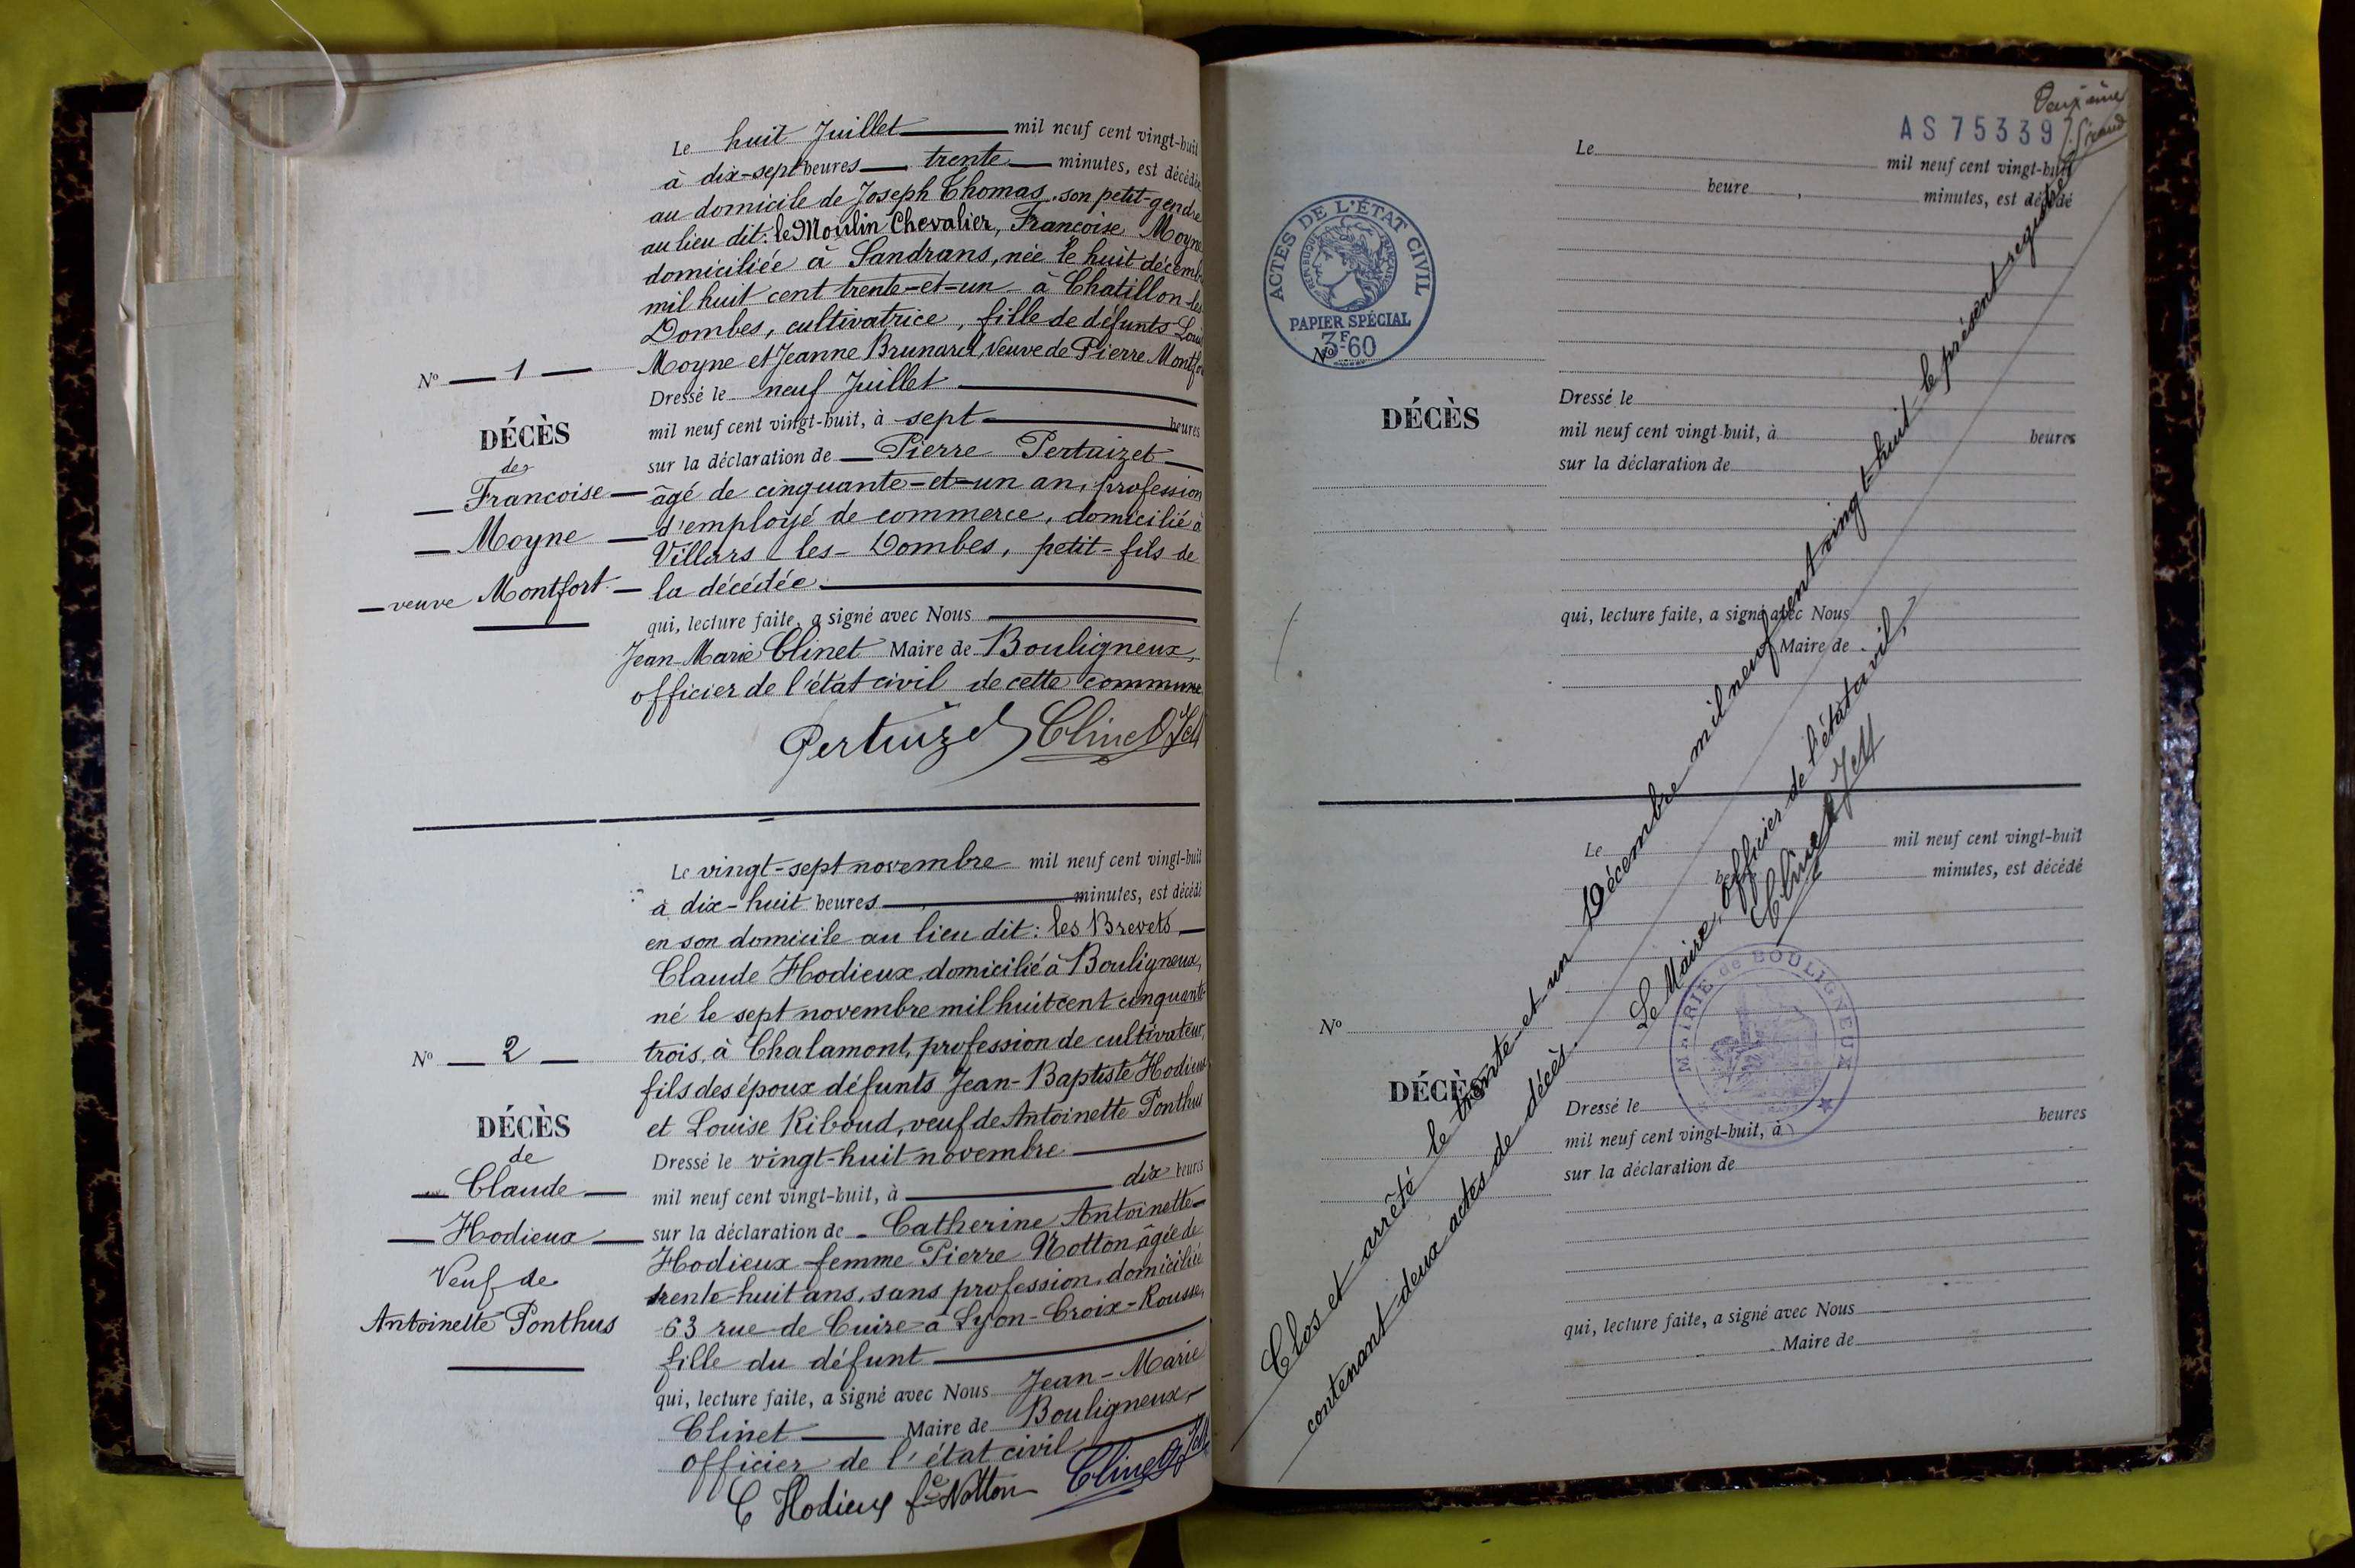 Le huit Juillet mil neuf cent vingt-huit
à dix-sept heures trente minutes, est décédée
au domicile de Joseph Thomas, son petit-gendre
au lieu dit: le Moulin Chevalier, Francoise Moyne
domiciliée à Sandrans, née le huit décemb
mil huit cent trente-et-un à Chatillon-les
Dombes, cultivatrice, fille de défunts Loui
Moyne et Jeanne Brunard, veuve de Pierre Montfo
No 1
Dressé le neuf Juillet
mil neuf cent vingt-huit, à sept heures
DÉCÈS
sur la déclaration de Pierre Pertuizet
de
Francoise
âgé de cinquante-et-un an, profession
Moyne
d'employé de commerce, domicilié à
Villars-les-Dombes, petit-fils de
veuve Montfort
la décédée.
qui, lecture faite, a signé avec Nous
Jean-Marie Clinet Maire de Bouligneux,
officier de l'état civil de cette commune
Pertuizet Clinet
Le vingt-sept novembre mil neuf cent vingt-huit
à dix-huit heures minutes, est décédé
en son domicile au lieu dit: les Brevets
Claude Hodieux, domicilié à Bouligneux,
né le sept novembre mil huit cent cinquante
No 2
trois, à Chalamont, profession de cultivateur,
fils des époux défunts Jean-Baptiste Hodieux
et Louise Riboud, veuf de Antoinette Ponthus
DÉCÈS
de
Dressé le vingt-huit novembre
Claude
mil neuf cent vingt-huit, à dix heures
Hodieux
sur la déclaration de Catherine Antoinette
Hodieux femme Pierre Notton âgée de
Veuf de
trente-huit ans, sans profession, domiciliée
Antoinette Ponthus
63 rue de Cuire à Lyon-Croix-Rousse,
fille du défunt
qui, lecture faite, a signé avec Nous Jean-Marie
Clinet Maire de Bouligneux,
officier de l'état civil
C Hodieux fe Notton Clinet
Deuxième
AS 75339
Giraud
Le mil neuf cent vingt-huit
heure minutes, est décédé
ACTES DE L'ÉTAT CIVIL
RÉPUBLIQUE FRANÇAISE
PAPIER SPÉCIAL
3F60
No
DÉCÈS
Dressé le
mil neuf cent vingt-huit, à heures
sur la déclaration de
qui, lecture faite, a signé avec Nous
Maire de
Le mil neuf cent vingt-huit
heure minutes, est décédé
No
DÉCÈS
Dressé le
mil neuf cent vingt-huit, à heures
sur la déclaration de
qui, lecture faite, a signé avec Nous
Maire de
Clos et arrêté le trente-et-un Décembre mil neuf cent vingt-huit le présent registre
contenant deux actes de décès.
Le Maire, officier de l'état civil,
Clinet
MAIRIE de BOULIGNEUX